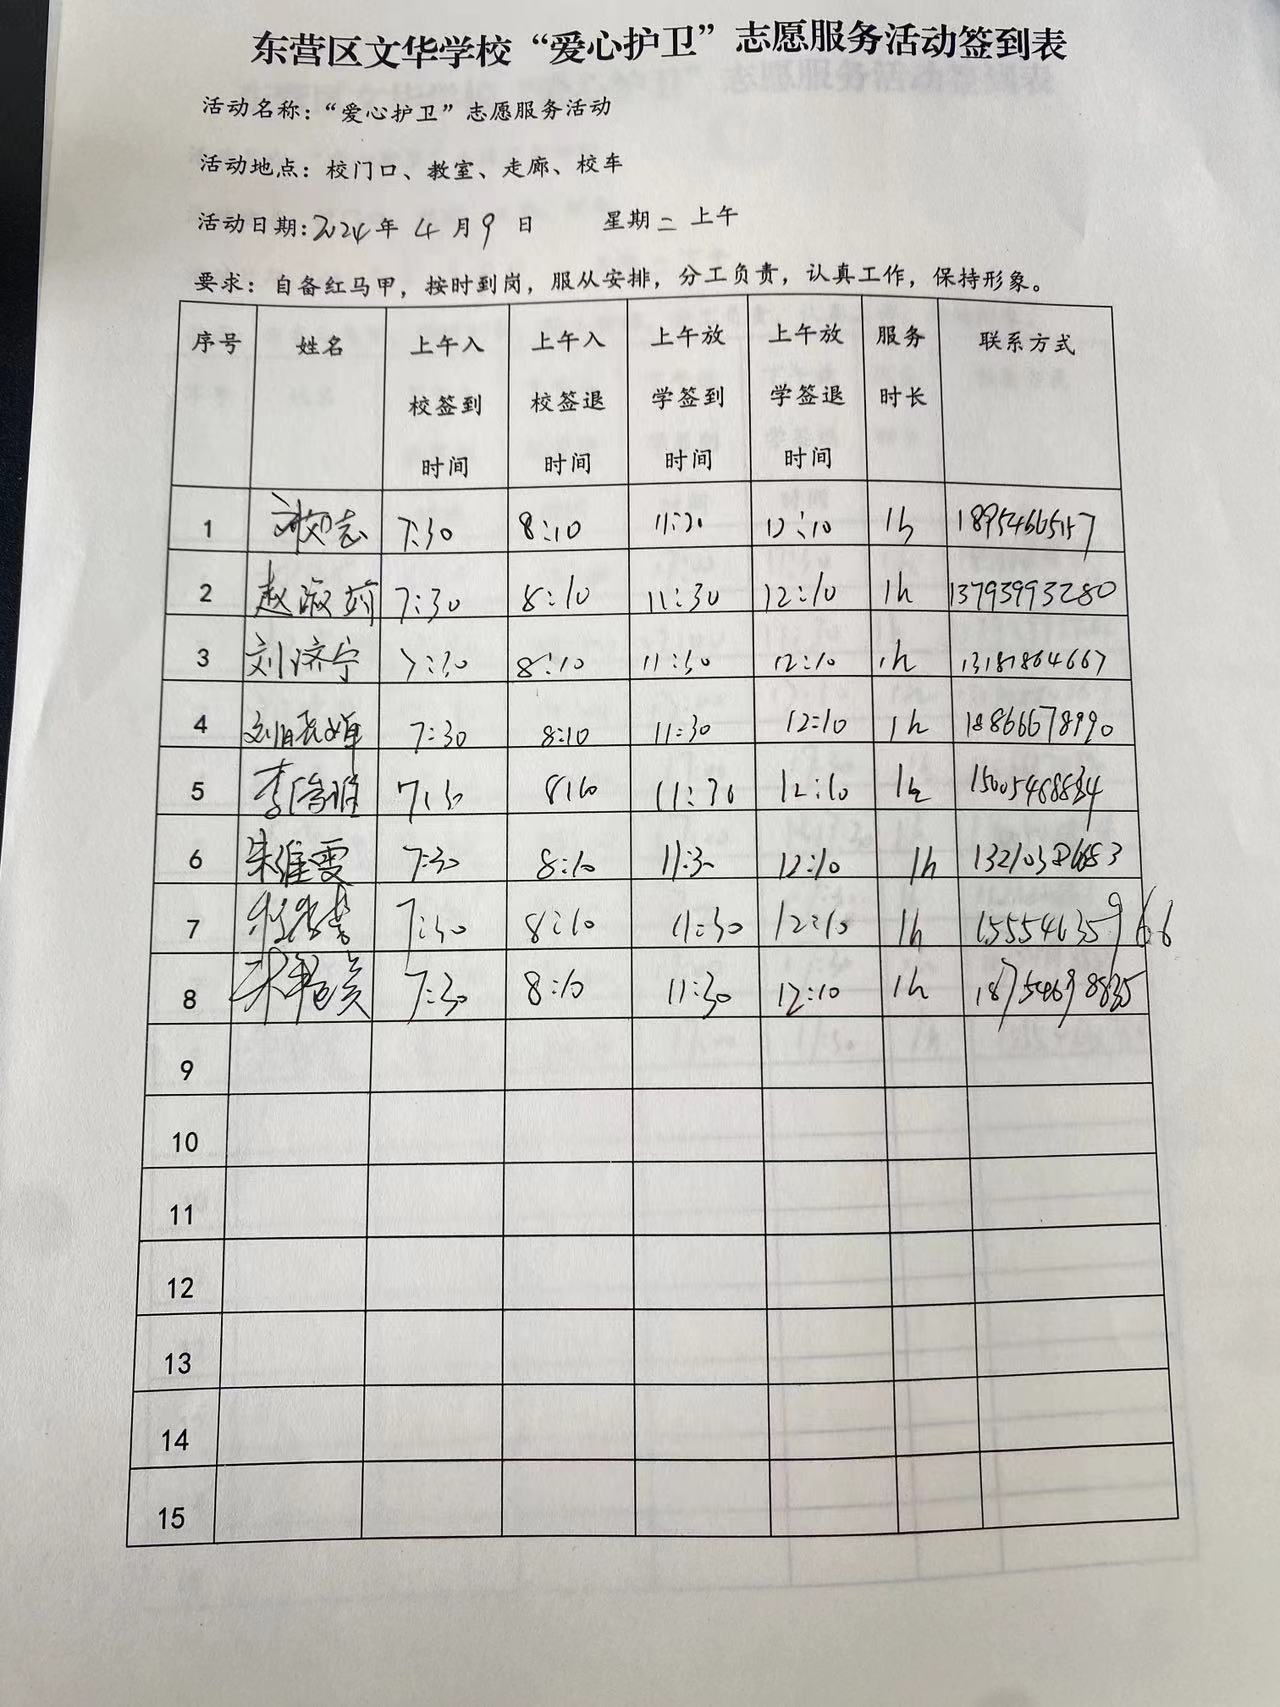 东营区文华学校“爱心护卫”志愿服务活动签到表
活动名称：“爱心护卫”志愿服务活动
活动地点：校门口、教室、走廊、校车
活动日期：2024年 4 月 9 日 星期二 上午
要求：自备红马甲，按时到岗，服从安排，分工负责，认真工作，保持形象。
序号 姓名 上午入校签到时间 上午入校签退时间 上午放学签到时间 上午放学签退时间 服务时长 联系方式
1 7:30 8:10 11:30 12:10 1h
2 赵淑 7:30 8:10 11:30 12:10 1h 13793993280
3 刘济宁 7:30 8:10 11:30 12:10 1h 13181864667
4 7:30 8:10 11:30 12:10 1h 18866678990
5 7:30 8:10 11:30 12:10 1h 15005468834
6 朱维雯 7:30 8:10 11:30 12:10 1h
7 7:30 8:10 11:30 12:10 1h 15554635966
8 7:30 8:10 11:30 12:10 1h
9
10
11
12
13
14
15